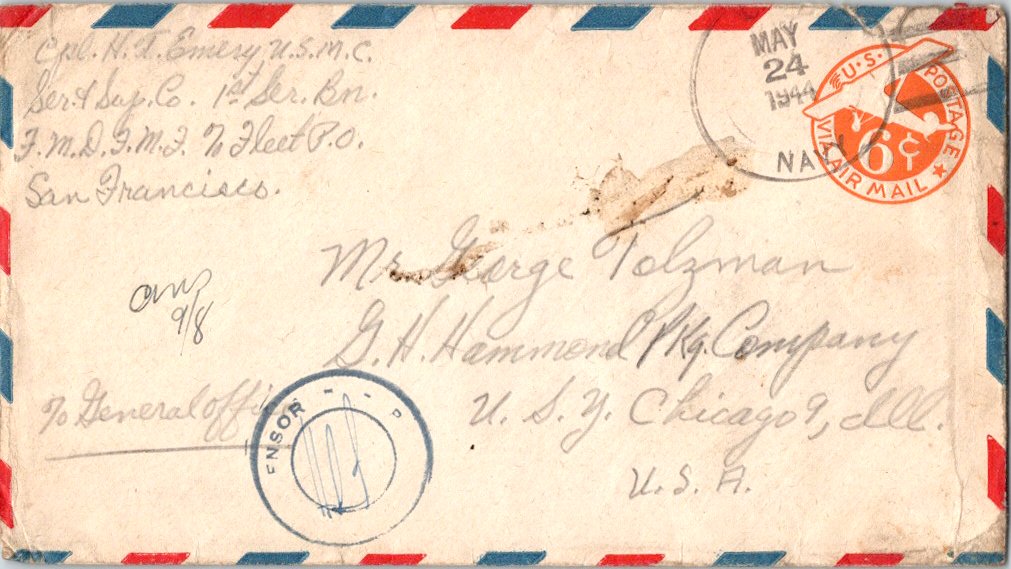 Cpl. H. T. Emery, U.S.M.C.
Ser & Sup. Co. 1st Ser. Bn.
F.M.D.F.M.F. % Fleet P.O.
San Francisco.
MAY
24
1944
NAVY
U.S. POSTAGE
6¢
VIA AIR MAIL
Mr George Tolzman
G. H. Hammond Pkg. Company
U. S. Y. Chicago 9, Ill.
U. S. A.
ans
9/8
% General office
ENSOR - - P